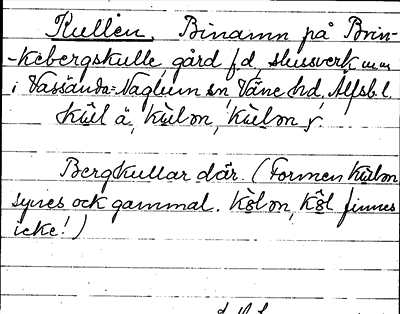 Kullen, Binamn på Brin-
-kebergskulle gård f.d. slussverk m m
i Vassända-Naglum sn, Väne hd, Älfsb. l.
kùl ä, kùlən, kùlən ƒ.
Bergkullar där. (Formen kùlən
synes ock gammal. kòlən, kôl finnes
icke!)